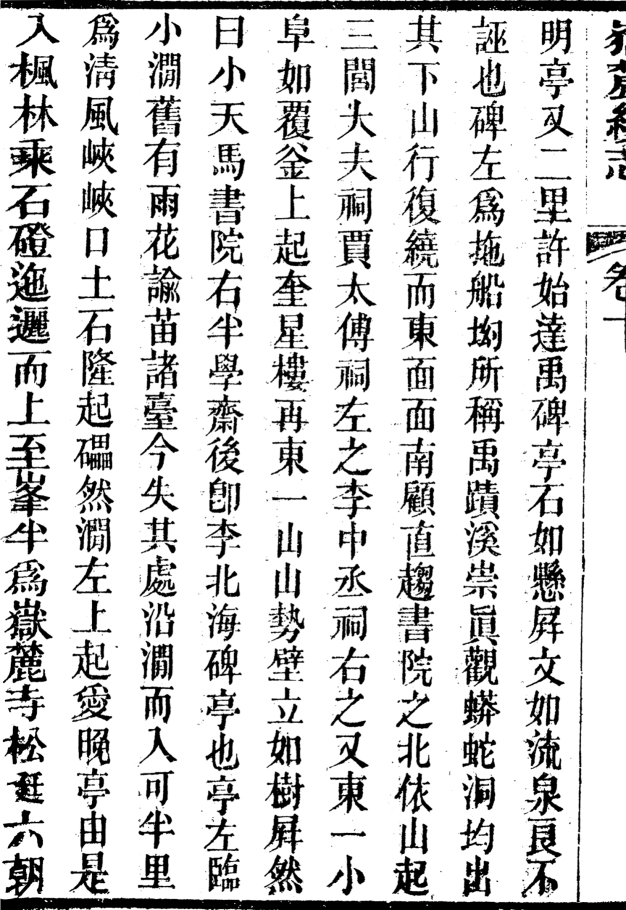 嶽麓續志
卷十
明亭又二里許始達禹碑亭石如懸屛文如流泉良不
誣也碑左爲拖船坳所稱禹蹟溪崇眞觀蟒蛇洞均出
其下山行復繞而東面面南顧直趨書院之北依山起
三閭大夫祠賈太傅祠左之李中丞祠右之又東一小
阜如覆釜上起奎星樓再東一山山勢壁立如樹屛然
曰小天馬書院右半學齋後卽李北海碑亭也亭左臨
小澗舊有雨花諭苗諸臺今失其處沿澗而入可半里
爲淸風峽峽口土石隆起礧然澗左上起愛晚亭由是
入楓林乘石磴迤邐而上至峯半爲嶽麓寺松逕六朝